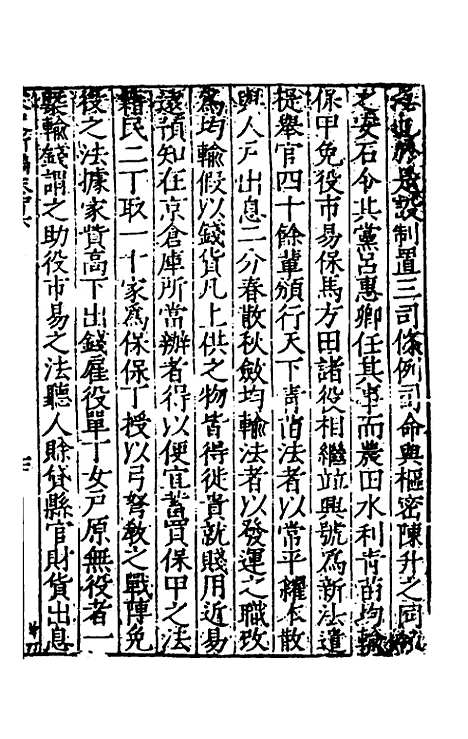 法也於是設制置三司條例司命與樞密陳升之同領
之安石令其黨呂惠卿任其事而農田水利青苗均輸
保甲免役市易保馬方田諸役相繼並興號為新法遣
提舉官四十餘輩頒行天下青苗法者以常平糴本散
與人戶出息二分春散秋斂均輸法者以發運之職改
為均輸假以錢貨凡上供之物皆得徙貴就賤用近易
遠預知在京倉庫所當辦者得以便宜蓄買保甲之法
籍民二丁取一十家為保保丁授以弓弩敎之戰陣免
役之法據家貲高下出錢雇役單丁女戶原無役者一
槩輸錢謂之助役市易之法聽人賒貸縣官財貨出息